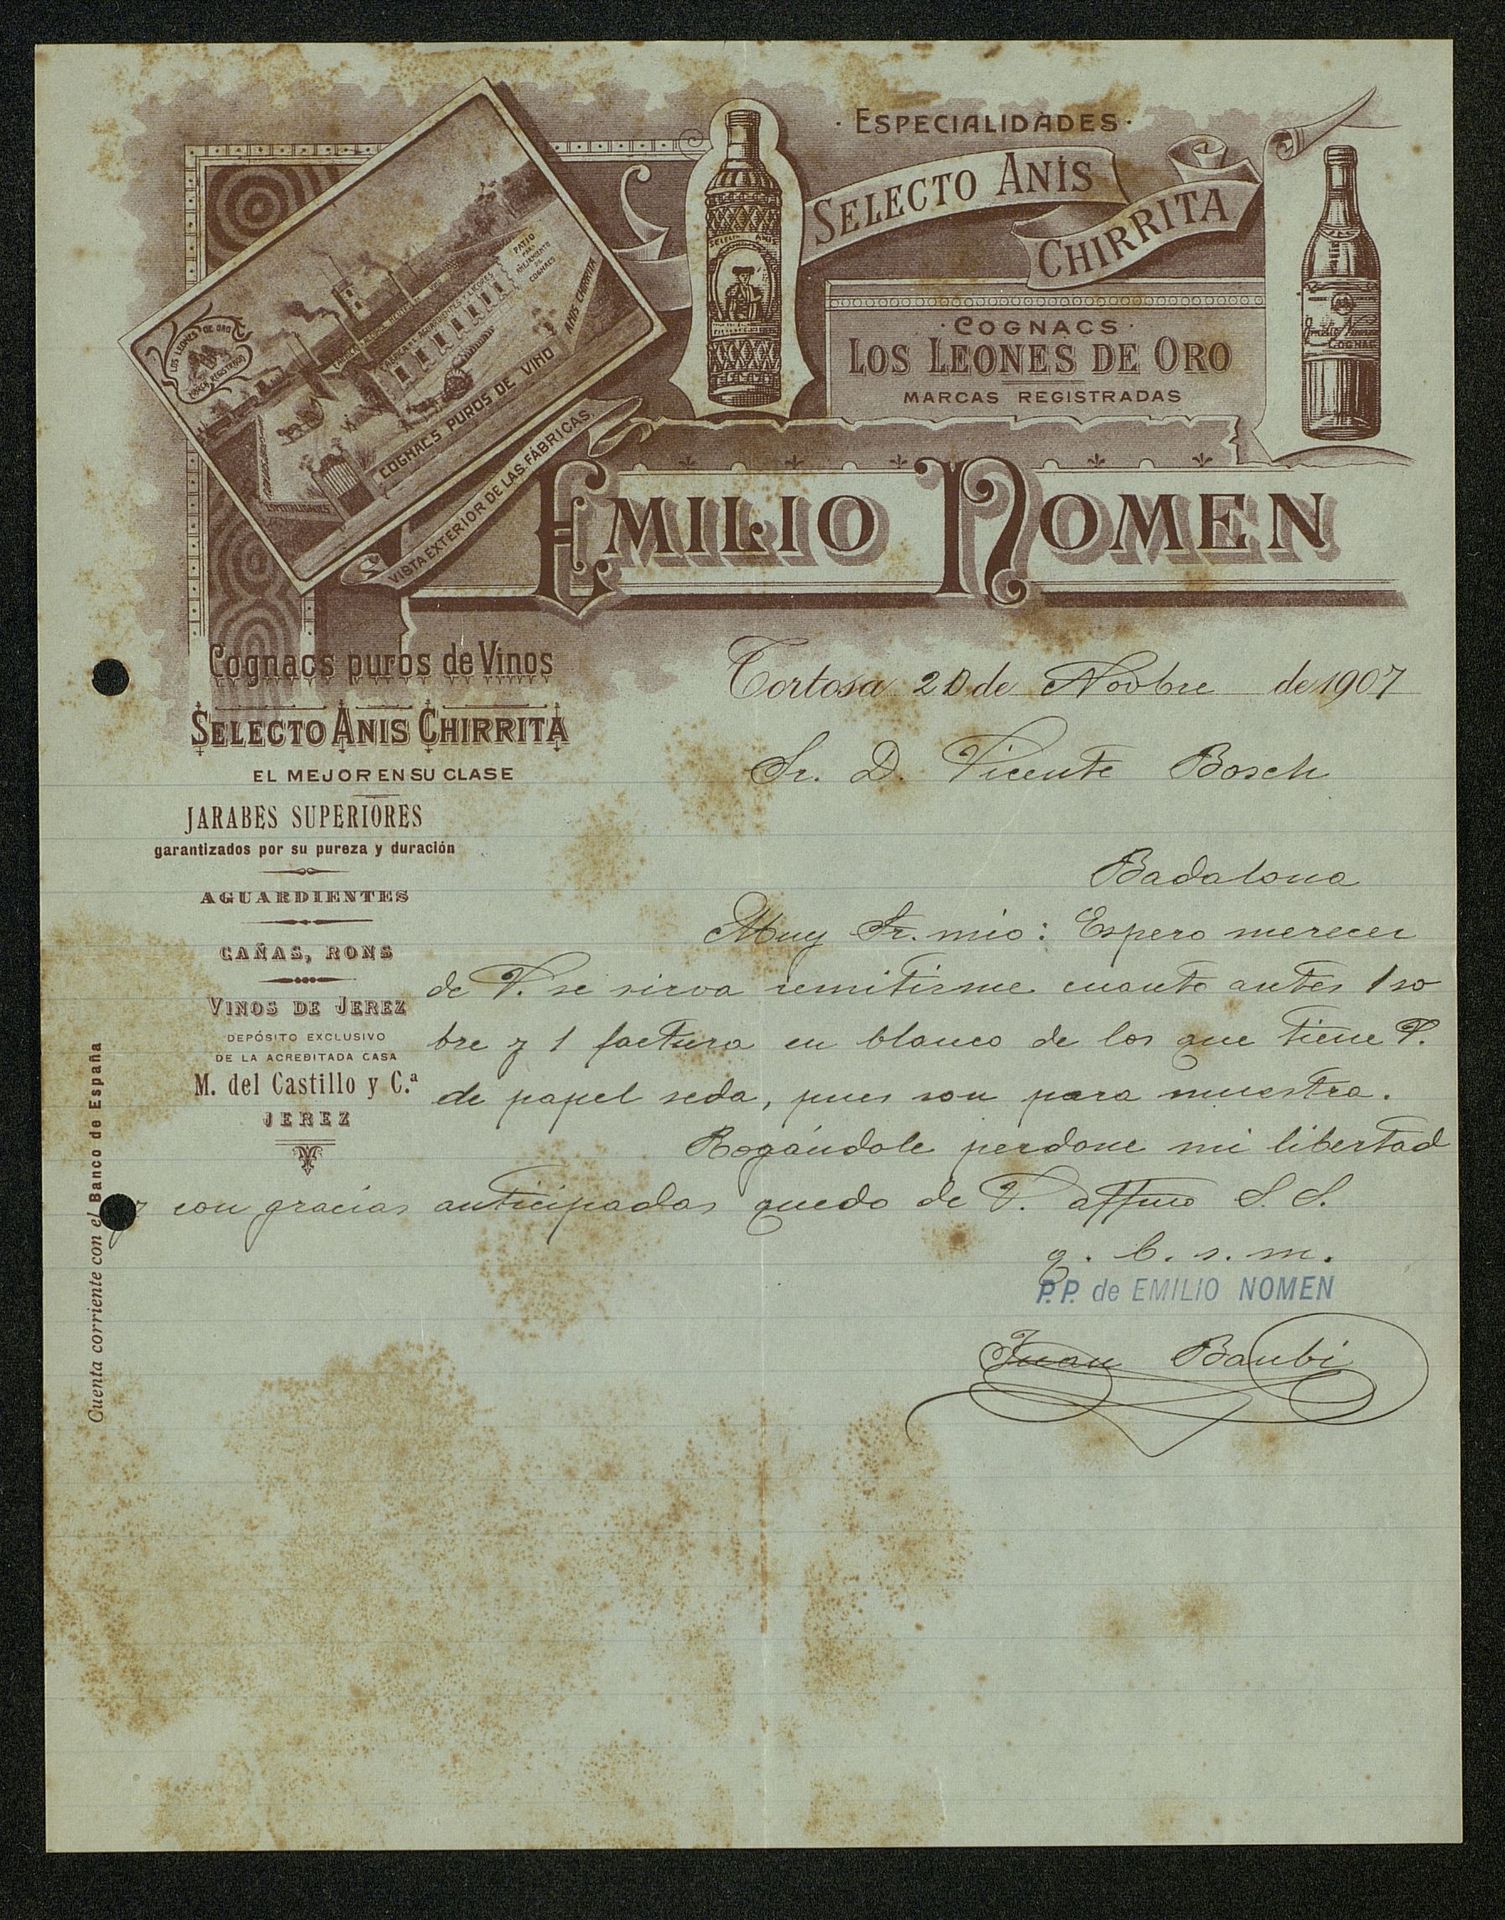 · ESPECIALIDADES ·
SELECTO ANÍS
CHIRRITA
· COGNACS ·
LOS LEONES DE ORO
MARCAS REGISTRADAS
LOS LEONES DE ORO
MARCA REGISTRADA
PATIO
PARA
AÑEJAMIENTO
DE
COGNACS
COGNACS PUROS DE VINO
ANIS CHIRRITA
ESPECIALIDADES
VISTA EXTERIOR DE LAS FÁBRICAS
SELECTO ANIS
COGNAC
EMILIO NOMEN
Cognacs puros de Vinos
SELECTO ANIS CHIRRITA
EL MEJOR EN SU CLASE
JARABES SUPERIORES
garantizados por su pureza y duración
AGUARDIENTES
CAÑAS, RONS
VINOS DE JEREZ
DEPÓSITO EXCLUSIVO
DE LA ACREDITADA CASA
M. del Castillo y C.ª
JEREZ
Cuenta corriente con el Banco de España
Tortosa 20 de Novbre de 1907
Sr. D. Vicente Bosch
Badalona
Muy Sr. mio: Espero merecer
de V. se sirva remitirme cuanto antes 1 so
bre y 1 factura en blanco de los que tiene V.
de papel seda, pues son para muestra.
Rogándole perdone mi libertad
y con gracias anticipadas quedo de V. affmo S. S.
q. b. s. m.
P.P. de EMILIO NOMEN
Juan Baubi